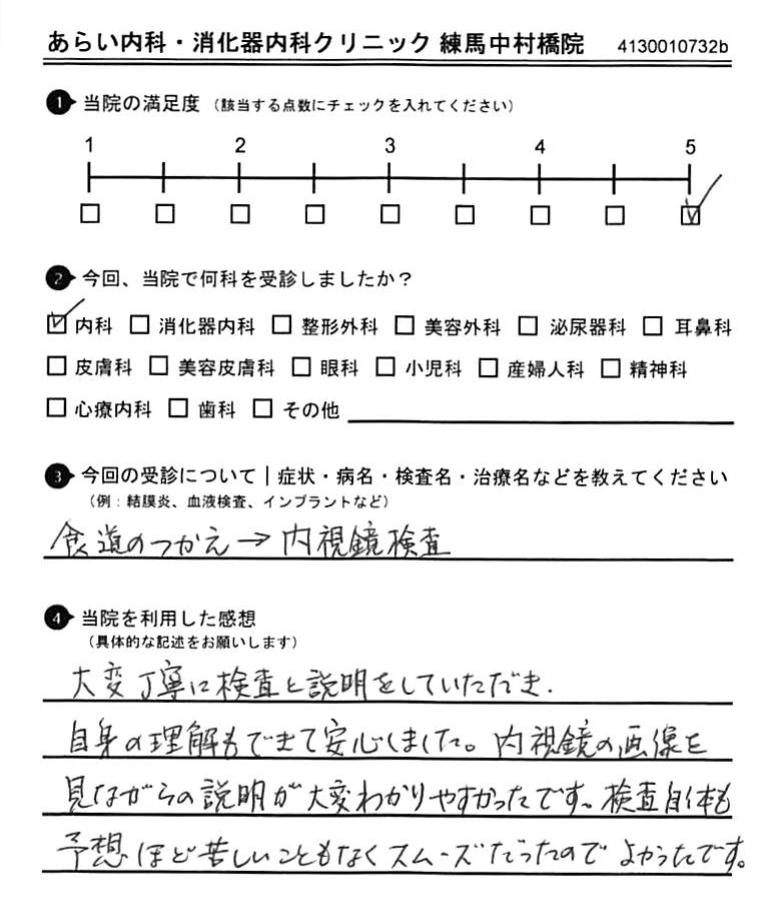 あらい内科・消化器内科クリニック 練馬中村橋院 4130010732b
1 当院の満足度 (該当する点数にチェックを入れてください)
1 2 3 4 5
2 今回、当院で何科を受診しましたか？
内科 消化器内科 整形外科 美容外科 泌尿器科 耳鼻科
皮膚科 美容皮膚科 眼科 小児科 産婦人科 精神科
心療内科 歯科 その他
3 今回の受診について｜症状・病名・検査名・治療名などを教えてください
(例：結膜炎、血液検査、インプラントなど)
食道のつかえ→内視鏡検査
4 当院を利用した感想
(具体的な記述をお願いします)
大変丁寧に検査と説明をしていただき、
自身の理解もできて安心しました。内視鏡の画像を
見ながらの説明が大変わかりやすかったです。検査自体も
予想ほど苦しいこともなくスムーズだったのでよかったです。